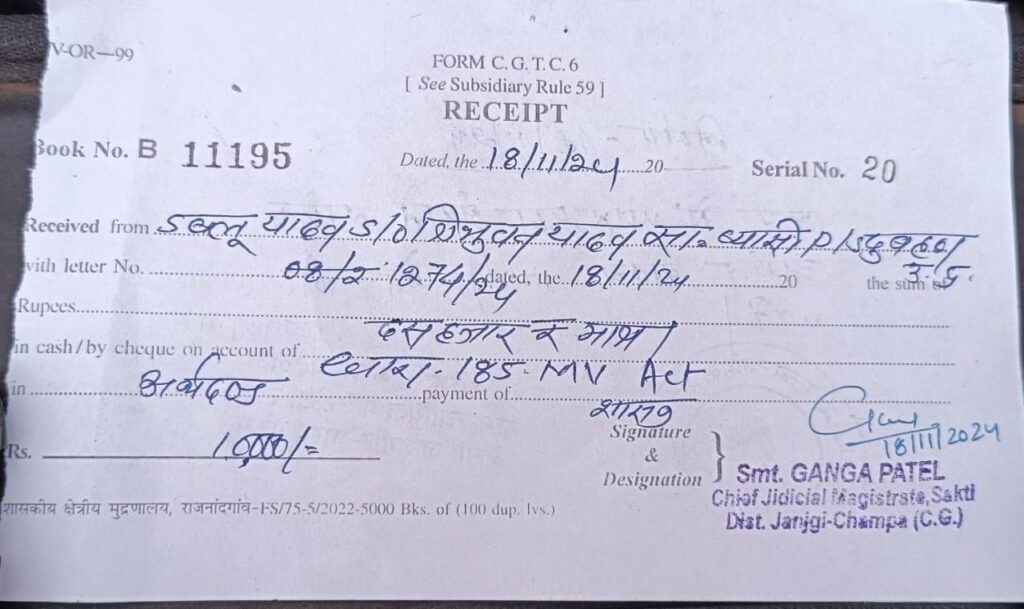 V-OR—99
FORM C.G.T.C. 6
[ See Subsidiary Rule 59 ]
RECEIPT
Book No. B 11195 Dated, the 18/11/24 20 Serial No. 20
Received from डबलू यादव S/O त्रिभुवन यादव सा= P/S
with letter No. 1274/24 dated, the 18/11/24 20 the sum of
Rupees दस हजार रू मात्र।
in cash/by cheque on account of धारा- 185- MV Act
in अर्थदण्ड payment of
Signature
&
Designation
18/11/2024
Rs. 10,000/=
Smt. GANGA PATEL
Chief Jidicial Magistrate, Sakti
Dist. Janjgi-Champa (C.G.)
शासकीय क्षेत्रीय मुद्रणालय, राजनांदगांव-FS/75-5/2022-5000 Bks. of (100 dup. lvs.)